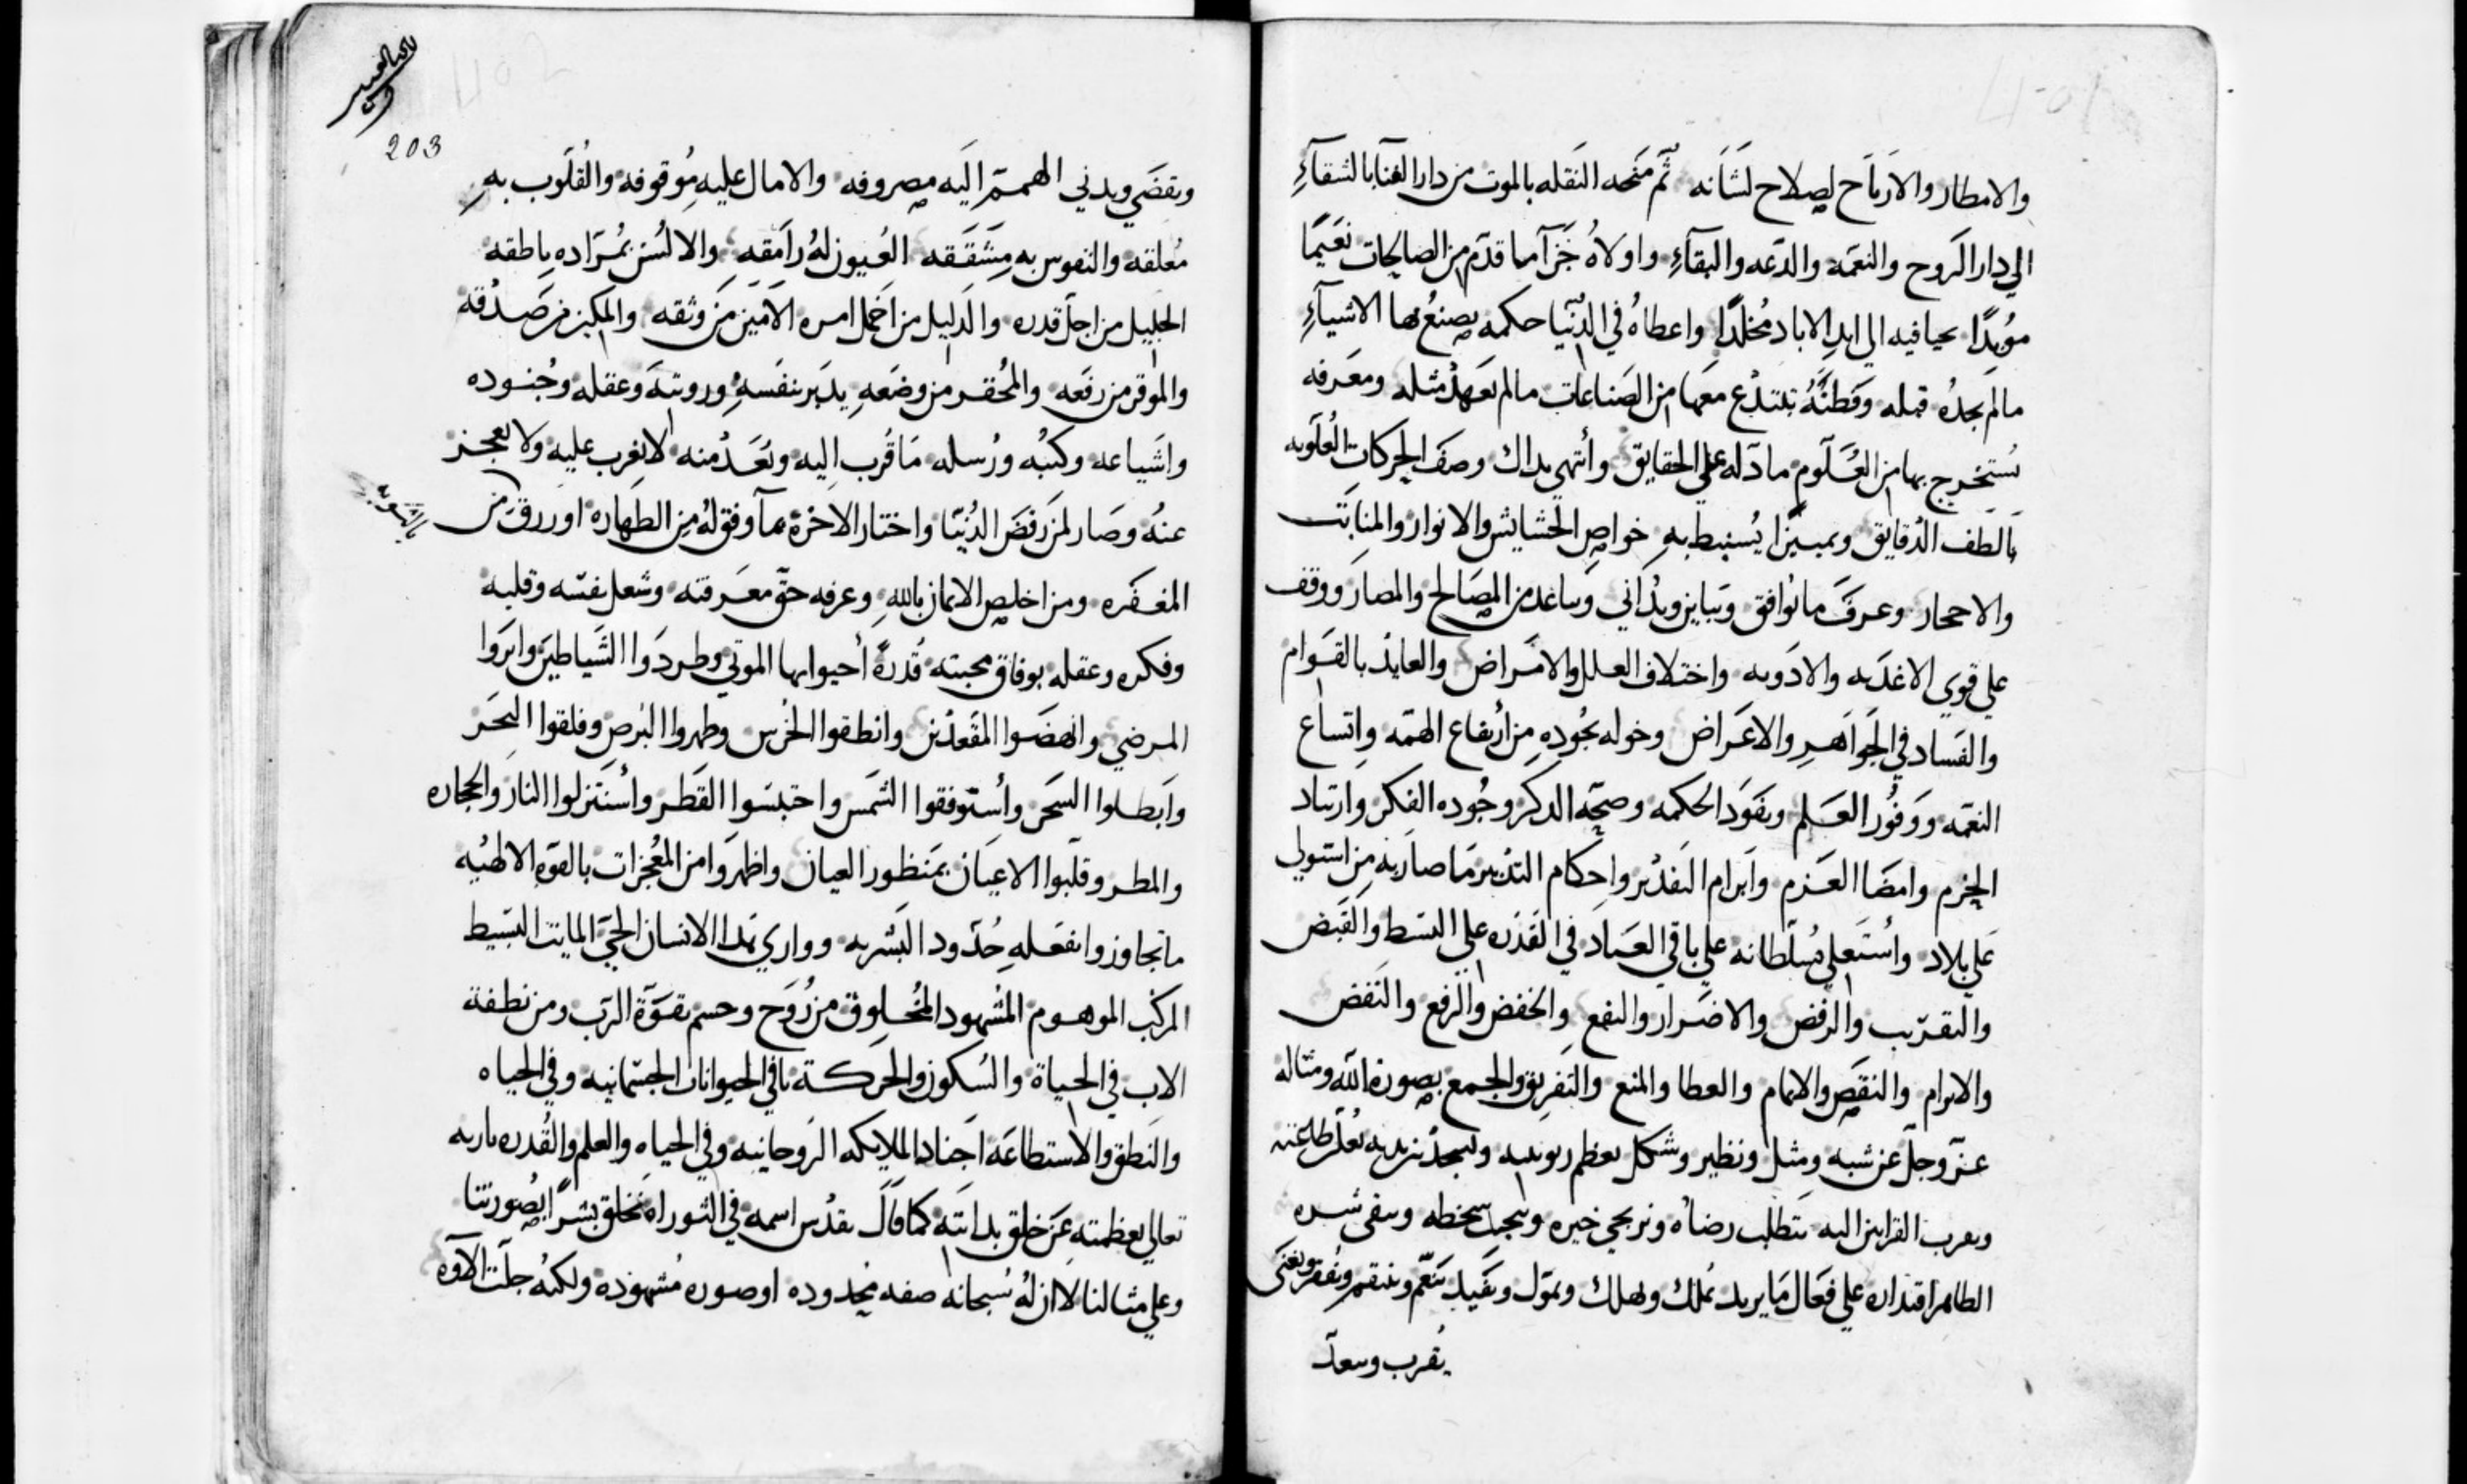 والامطار والارياح لصلاح لشانه ثم منحه النقله بالموت من دار الفنا بالشقآءِ
الي دار الروح والنعمه والدعه والبقآءِ واولاهُ جزآ ما قدم من الصالحات نعيمًا
موبدًا يحيا فيه الي ابد الاباد مخلدًا واعطاهُ في الدنيا حكمه يصنعُ بها الاشيآءِ
مالم يجدُه قبله وفطنَةً يبتدع معها من الصناعات مالم يعهد مثله ومعرفه
يُستخرج بها من العلوم ما دله علي الحقايق وأنتهي بداك وصف الحركات العُلويه
بالطف الدقايق وتمييزًا يُستنبط بهِ خواص الحشايش والانوار والمنابت
والاحجار وعرف ما توافق وتباين ويداني وساعد من المصالح والمضار ووقف
علي قوي الاغديه والادويه واختلاف العلل والامراض والعايد بالقوام
والفساد في الجواهر والاعراض وخوله بجُودهِ من أرتفاع الهمه واتساع
النعمه ووفُور العلم ونفود الحكمه وصحة الدكر وجُوده الفكر وارتياد
الحزم وامضا العزم وابرام التقدير واحكام التدبير ما صار به من استولي
علي بلاد واُستعلي سُلطانه علي باقي العباد في القدره علي البسط والقبض
والتقريب والرفض والاضرار والنفع والخفض والرفع والنقض
والابرام والنقص والاتمام والعطا والمنع والتفريق والجمع بصورة الله ومثاله
عز وجل عن شبه ومثل ونظير وشكل يعظم ربوبيته
ويقرب القرابين اليه يتطلب رضاهُ ونرتجي خيره ويتجنب سخطه ويتقي شره
الظاهر اقتداره علي فعال ما يريد يملك ويهلك ويمول ويفيد ينعم وينتقم ويفقر ويغني
يُقرب ويبعد
203
ويقضي ويدني الهمم اليه مصروفه والامال عليه مُوقوفه والقُلوب بهِ
مُعلقه والنفوس به مشفقه العُيون لهُ رامقه والالسُن بمُراده ناطقه
الجليل من اجل قدره والدليل من اخمل امره الامين من وثقه والمكين من صدُقه
والموقر من رفعه والمُحقر من وضعه يدبر بنفسهِ ورويته وعقله وجُنوده
واشياعه وكتبُه ورُسله ما قُرب اليه وبَعَد منه لا يغرب عليه ولا يعجز
عنهُ وصار لمن رفض الدُنيا واختار الاخرة بمآ وفق لهُ من الطهاره اورزق من
المغفره ومن اخلص الايمان باللهِ وعرفه حق معرفته وشغل نفسه وقلبه
وفكره وعقله بوفاق محبته قُدرةً أحيوا بها الموتي وطردوا الشياطين وابروا
المرضي وانهضوا المقعدين وانطقوا الخرس وطهروا البُرص وفلقوا البحر
وابطلوا السحر وأستوقفوا الشمس واحتبسوا القطر وأستنزلوا النار والحجاره
والمطر وقلبوا الاعيان بمنظور العيان واظهروا من المُعجزات بالقوه الالهيُه
ما تجاوزوا بفعلهِ حُدود البشريه ووازي بهدا الانسان الحي المايت البسيط
المركب الموهوم المشهود المخلوق من رُوح وجسم بقوَّة الرَب ومن نطفة
الاب في الحياة والسُكون والحركة باقي الحيوانات الجسمانيه وفي الحياه
والنطق والاستطاعه اجناد الملايكه الروحانيه وفي الحياه والعلم والقُدره باريه
تعالي بعظمته عن خلق بداته كما قال تقدُس اسمه في التوراه نخلق بشرًا بصُورتنا
وعلي مثالنا لا ان لهُ سُبحانه صفه محدوده او صوره مُشهوده ولكنهُ جلت الآوه